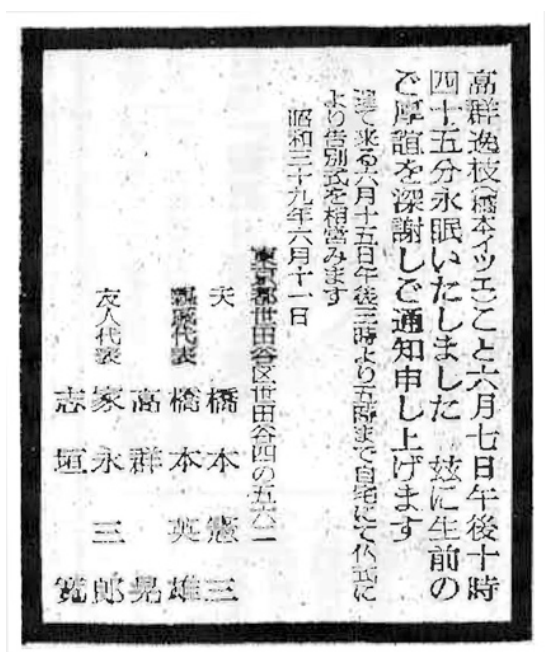 高群逸枝(橋本イツエ)こと六月七日午後十時
四十五分永眠いたしました 玆に生前の
ご厚誼を深謝しご通知申し上げます
追て来る六月十五日午後三時より五時まで自宅にて仏式に
より告別式を相営みます
昭和三十九年六月十一日
東京都世田谷区世田谷四の五六二
夫 橋本憲三
親戚代表 橋本英雄
高群 晃
友人代表 家永三郎
志垣 寛